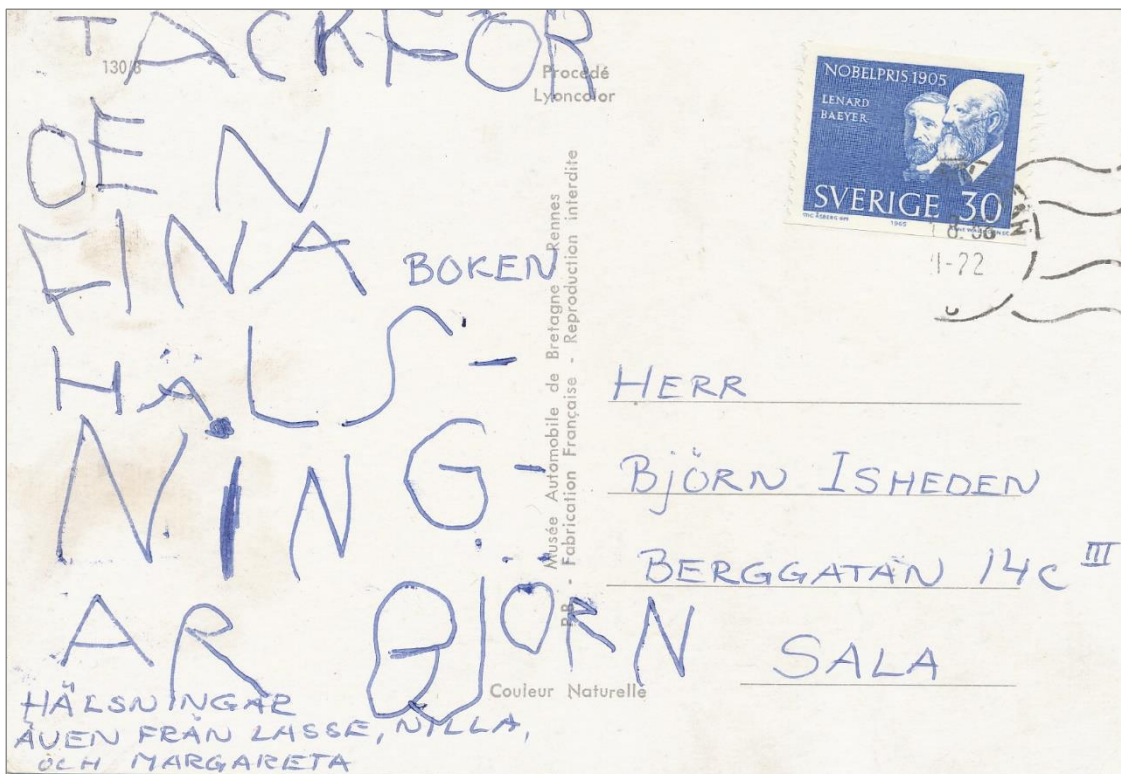 TACK FÖR
DEN
FINA BOKEN
HÄLS-
NING-
AR BJÖRN
HÄLSNINGAR
ÄVEN FRÅN LASSE, NILLA,
OCH MARGARETA
130/8
Procedé
Lyoncolor
Musée Automobile de Bretagne Rennes
P.B. - Fabrication Française - Reproduction interdite
Couleur Naturelle
NOBELPRIS 1905
LENARD
BAEYER
SVERIGE 30
1965
HERR
BJÖRN ISHEDEN
BERGGATAN 14C III
SALA